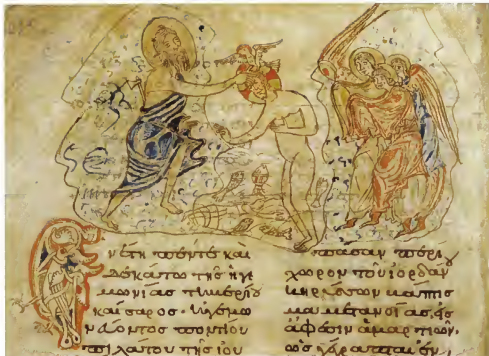 Ενέτη πεντε καὶ
δεκατω της ηγε
μωνίας τιβερίου
καισαρος · ἡγεμω
νέβοντος ποντίου
πιλάτου της ιου
πασαν περι
χωρον του ιορδαν
κηρυσσων βαπτισ
μα μετανοίας, εἰς
ἄφεσιν ἁμαρτιων,
ὡς γέγραπται ἐν